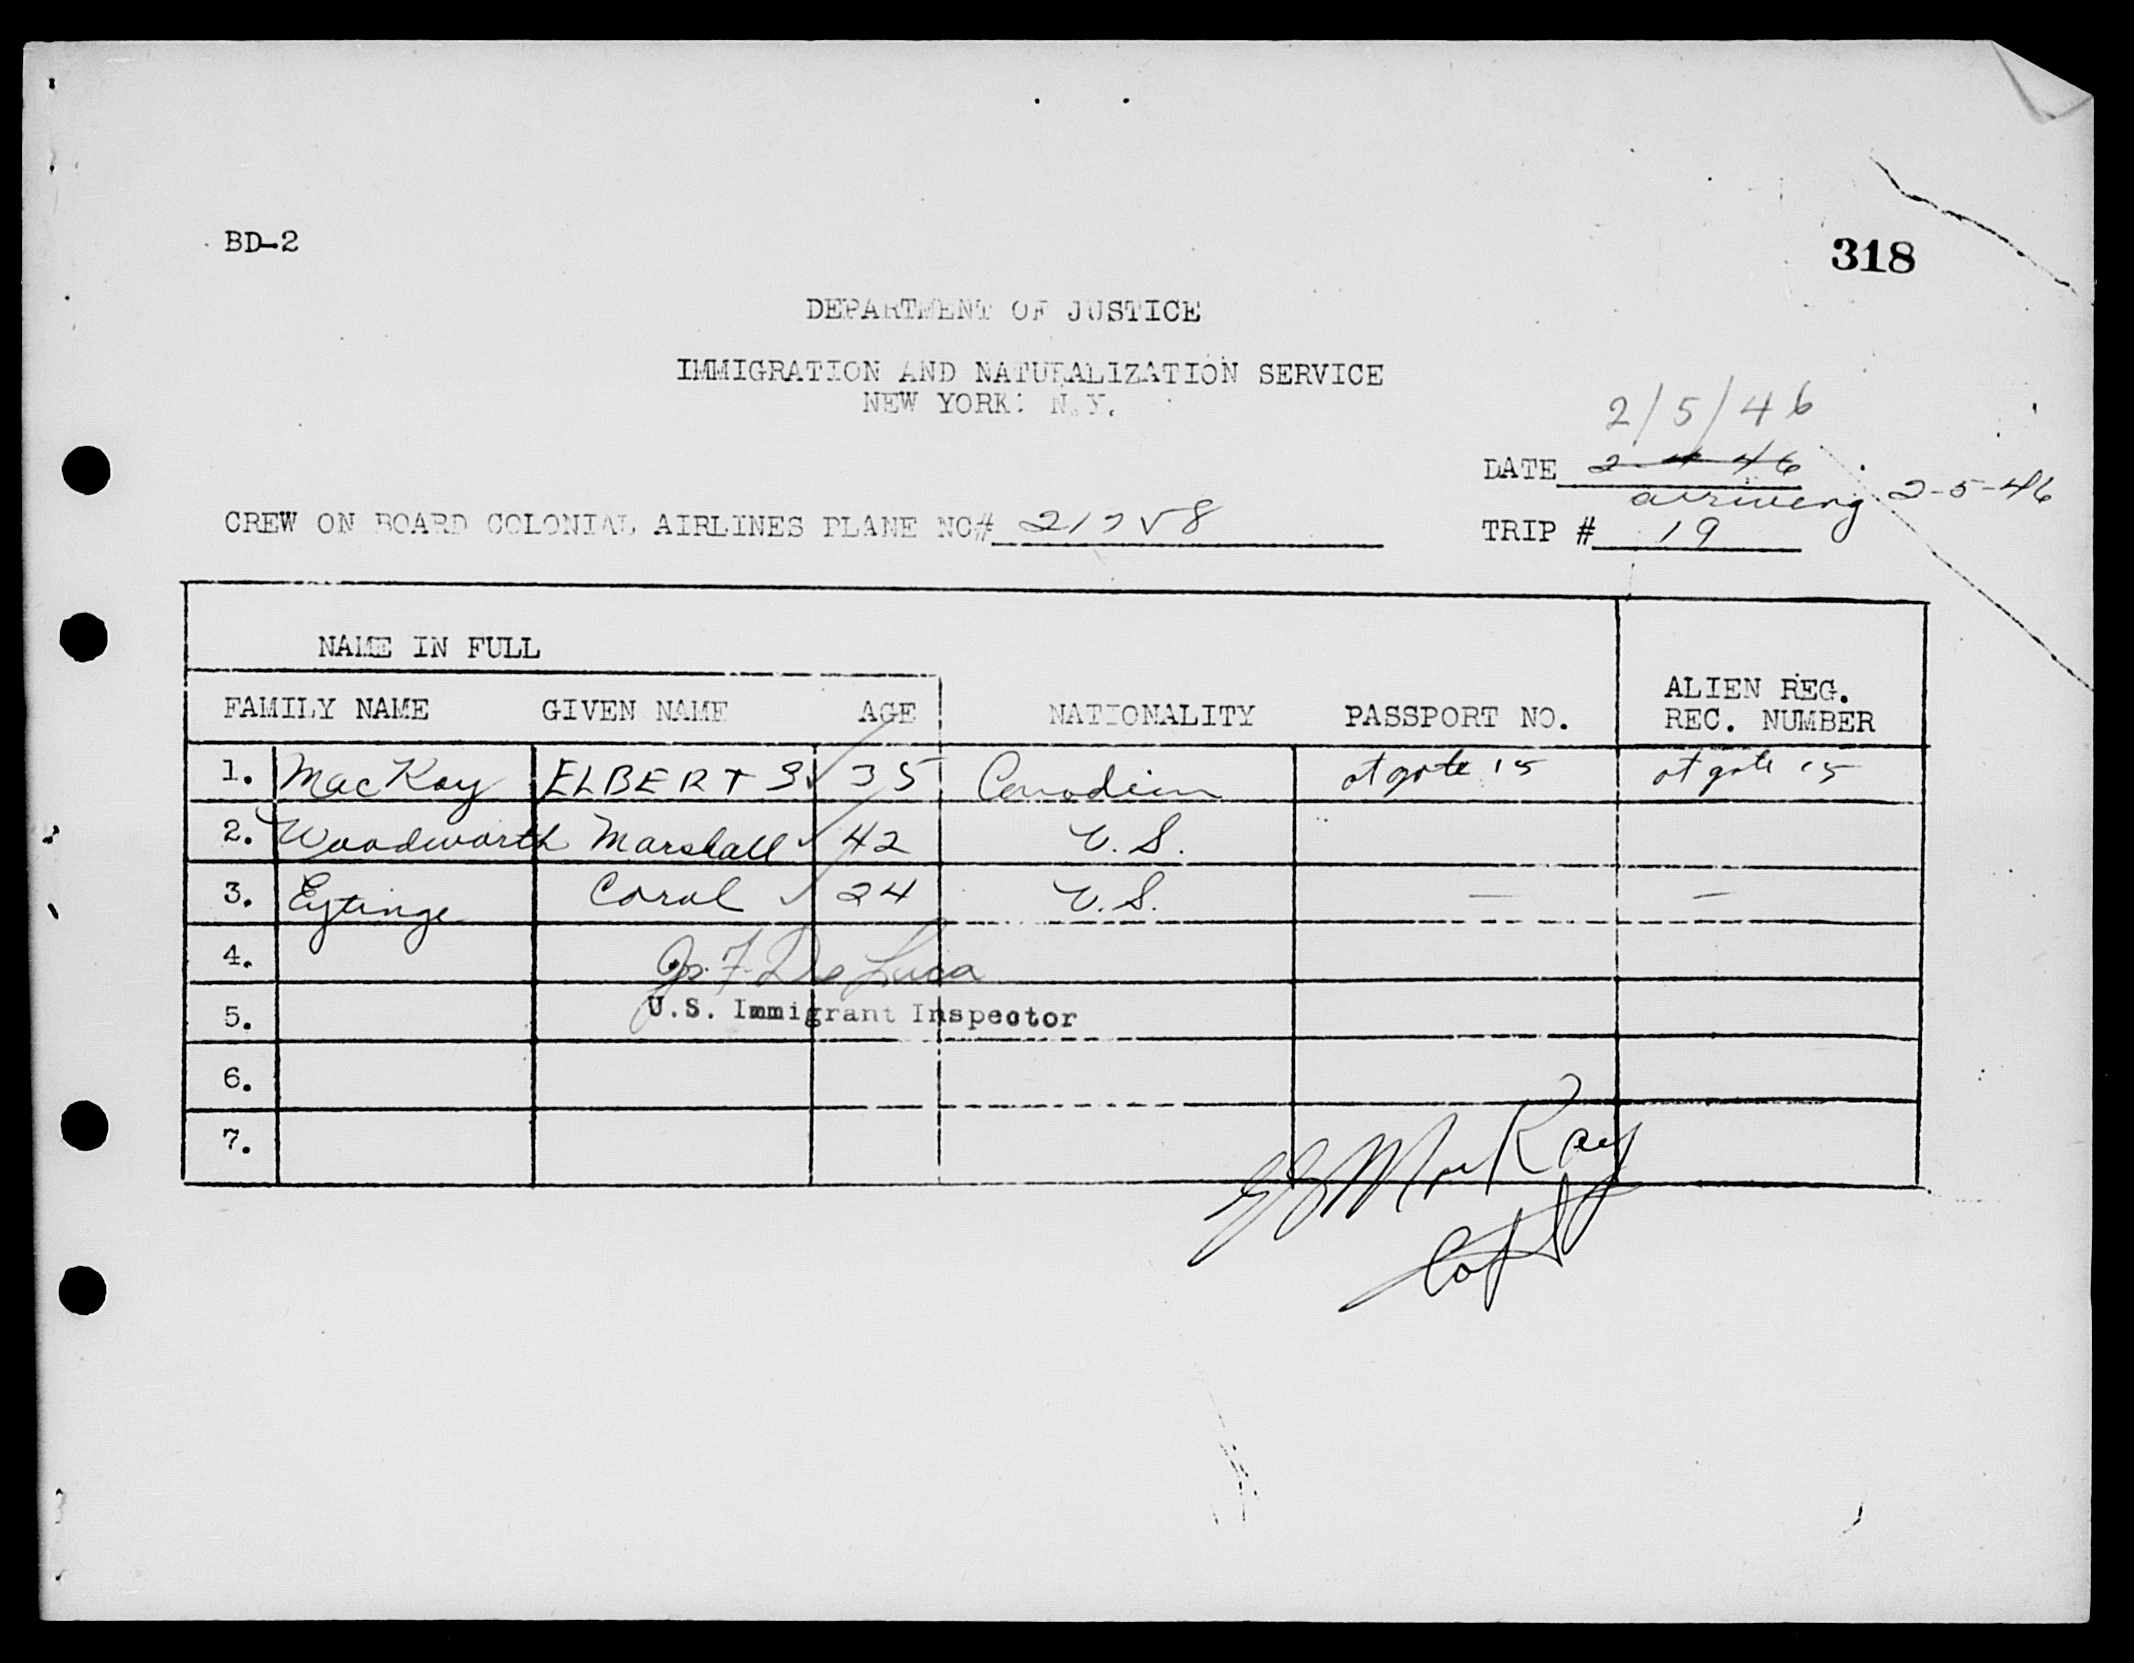 BD-2
318
DEPARTMENT OF JUSTICE
IMMIGRATION AND NATURALIZATION SERVICE
NEW YORK: N.Y.
2/5/46
DATE 2-4-46
arriveng 2-5-46
CREW ON BOARD COLONIAL AIRLINES PLANE NO# 21758
TRIP # 19
NAME IN FULL
FAMILY NAME GIVEN NAME AGE NATIONALITY PASSPORT NO. ALIEN REG. REC. NUMBER
1. MacKay ELBERT S 35 Canadian at gate 15 at gate 15
2. Woodworth Marshall 42 U.S.
3. Eytinge Coral 24 U.S. — —
4. Jos. F. De Luca
5. U.S. Immigrant Inspector
6.
7.
ES MacKay
Capt